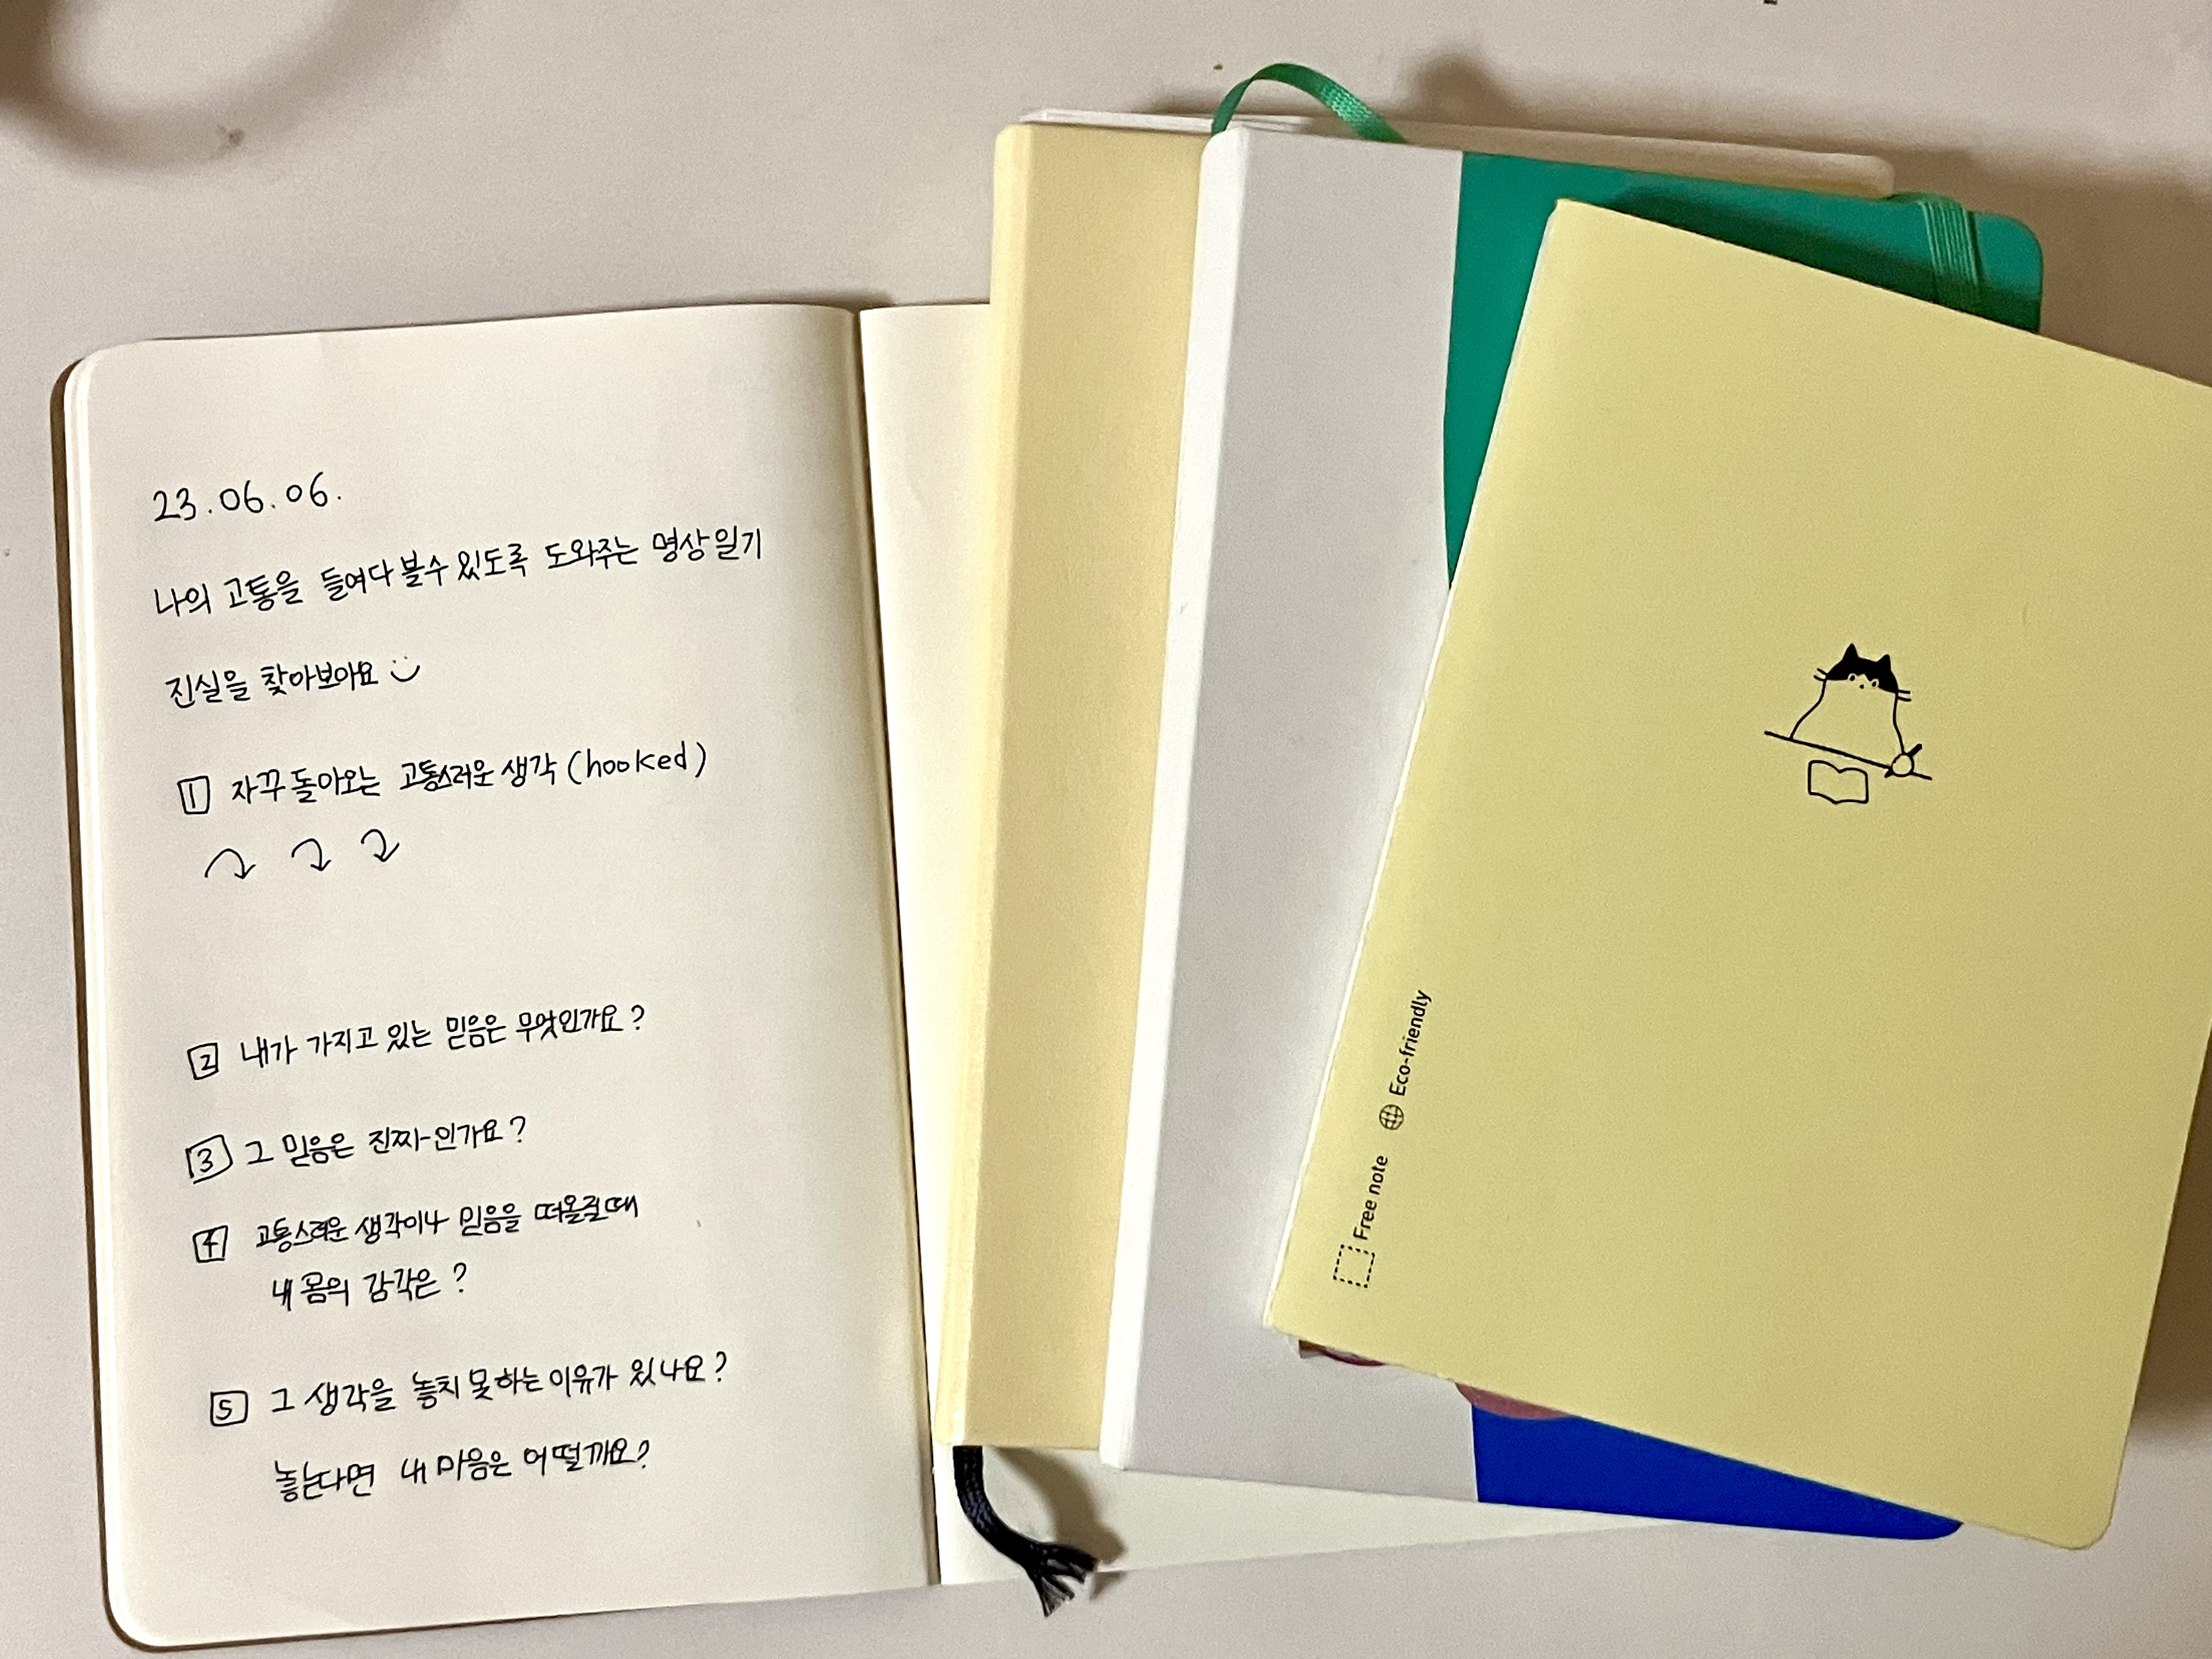 23.06.06.
나의 고통을 들여다 볼 수 있도록 도와주는 명상일기
진실을 찾아보아요
1 자꾸 돌아오는 고통스러운 생각 (hooked)
2 내가 가지고 있는 믿음은 무엇인가요?
3 그 믿음은 진짜인가요?
4 고통스러운 생각이나 믿음을 떠올릴 때
내 몸의 감각은?
5 그 생각을 놓치 못하는 이유가 있나요?
놓는다면 내 마음은 어떨까요?
Free note Eco-friendly